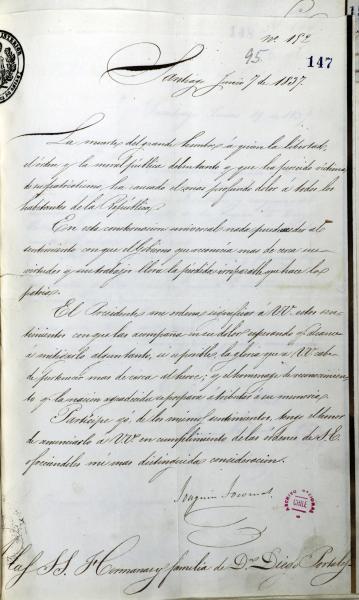 nº 15º
95.
147
Santiago Junio 7 de 1837.
La muerte del grande hombre á quien la libertad,
el orden y la moral pública deben tanto y que ha perecido víctima
de su patriotismo, ha causado el mas profundo dolor á todos los
habitantes de la República.
En esta consternacion universal nada puede al
sentimiento con que el Gobierno que conocia mas de cerca sus
virtudes y sus trabajos llora la pérdida irreparable que hace la
patria.
El Presidente me ordena significar á VV. estos sen-
timientos con que los acompaña en su dolor esperando que alcance
á mitigarlo algun tanto, si es posible, la gloria que á VV. cabe
de pertenecer mas de cerca al heroe; y el homenaje de reconocimien-
to qe. la nacion agradecida se prepara á tributar á su memoria.
Partícipe yo de los mismos sentimientos, tengo el honor
de anunciarlo á VV. en cumplimiento de las órdenes de S.E.
ofreciendoles mi mas distinguida consideracion.
Joaquin Tocornal
ARCHIVO NACIONAL
CHILE
A los SS. Hermanas y familia de Dn. Diego Portales